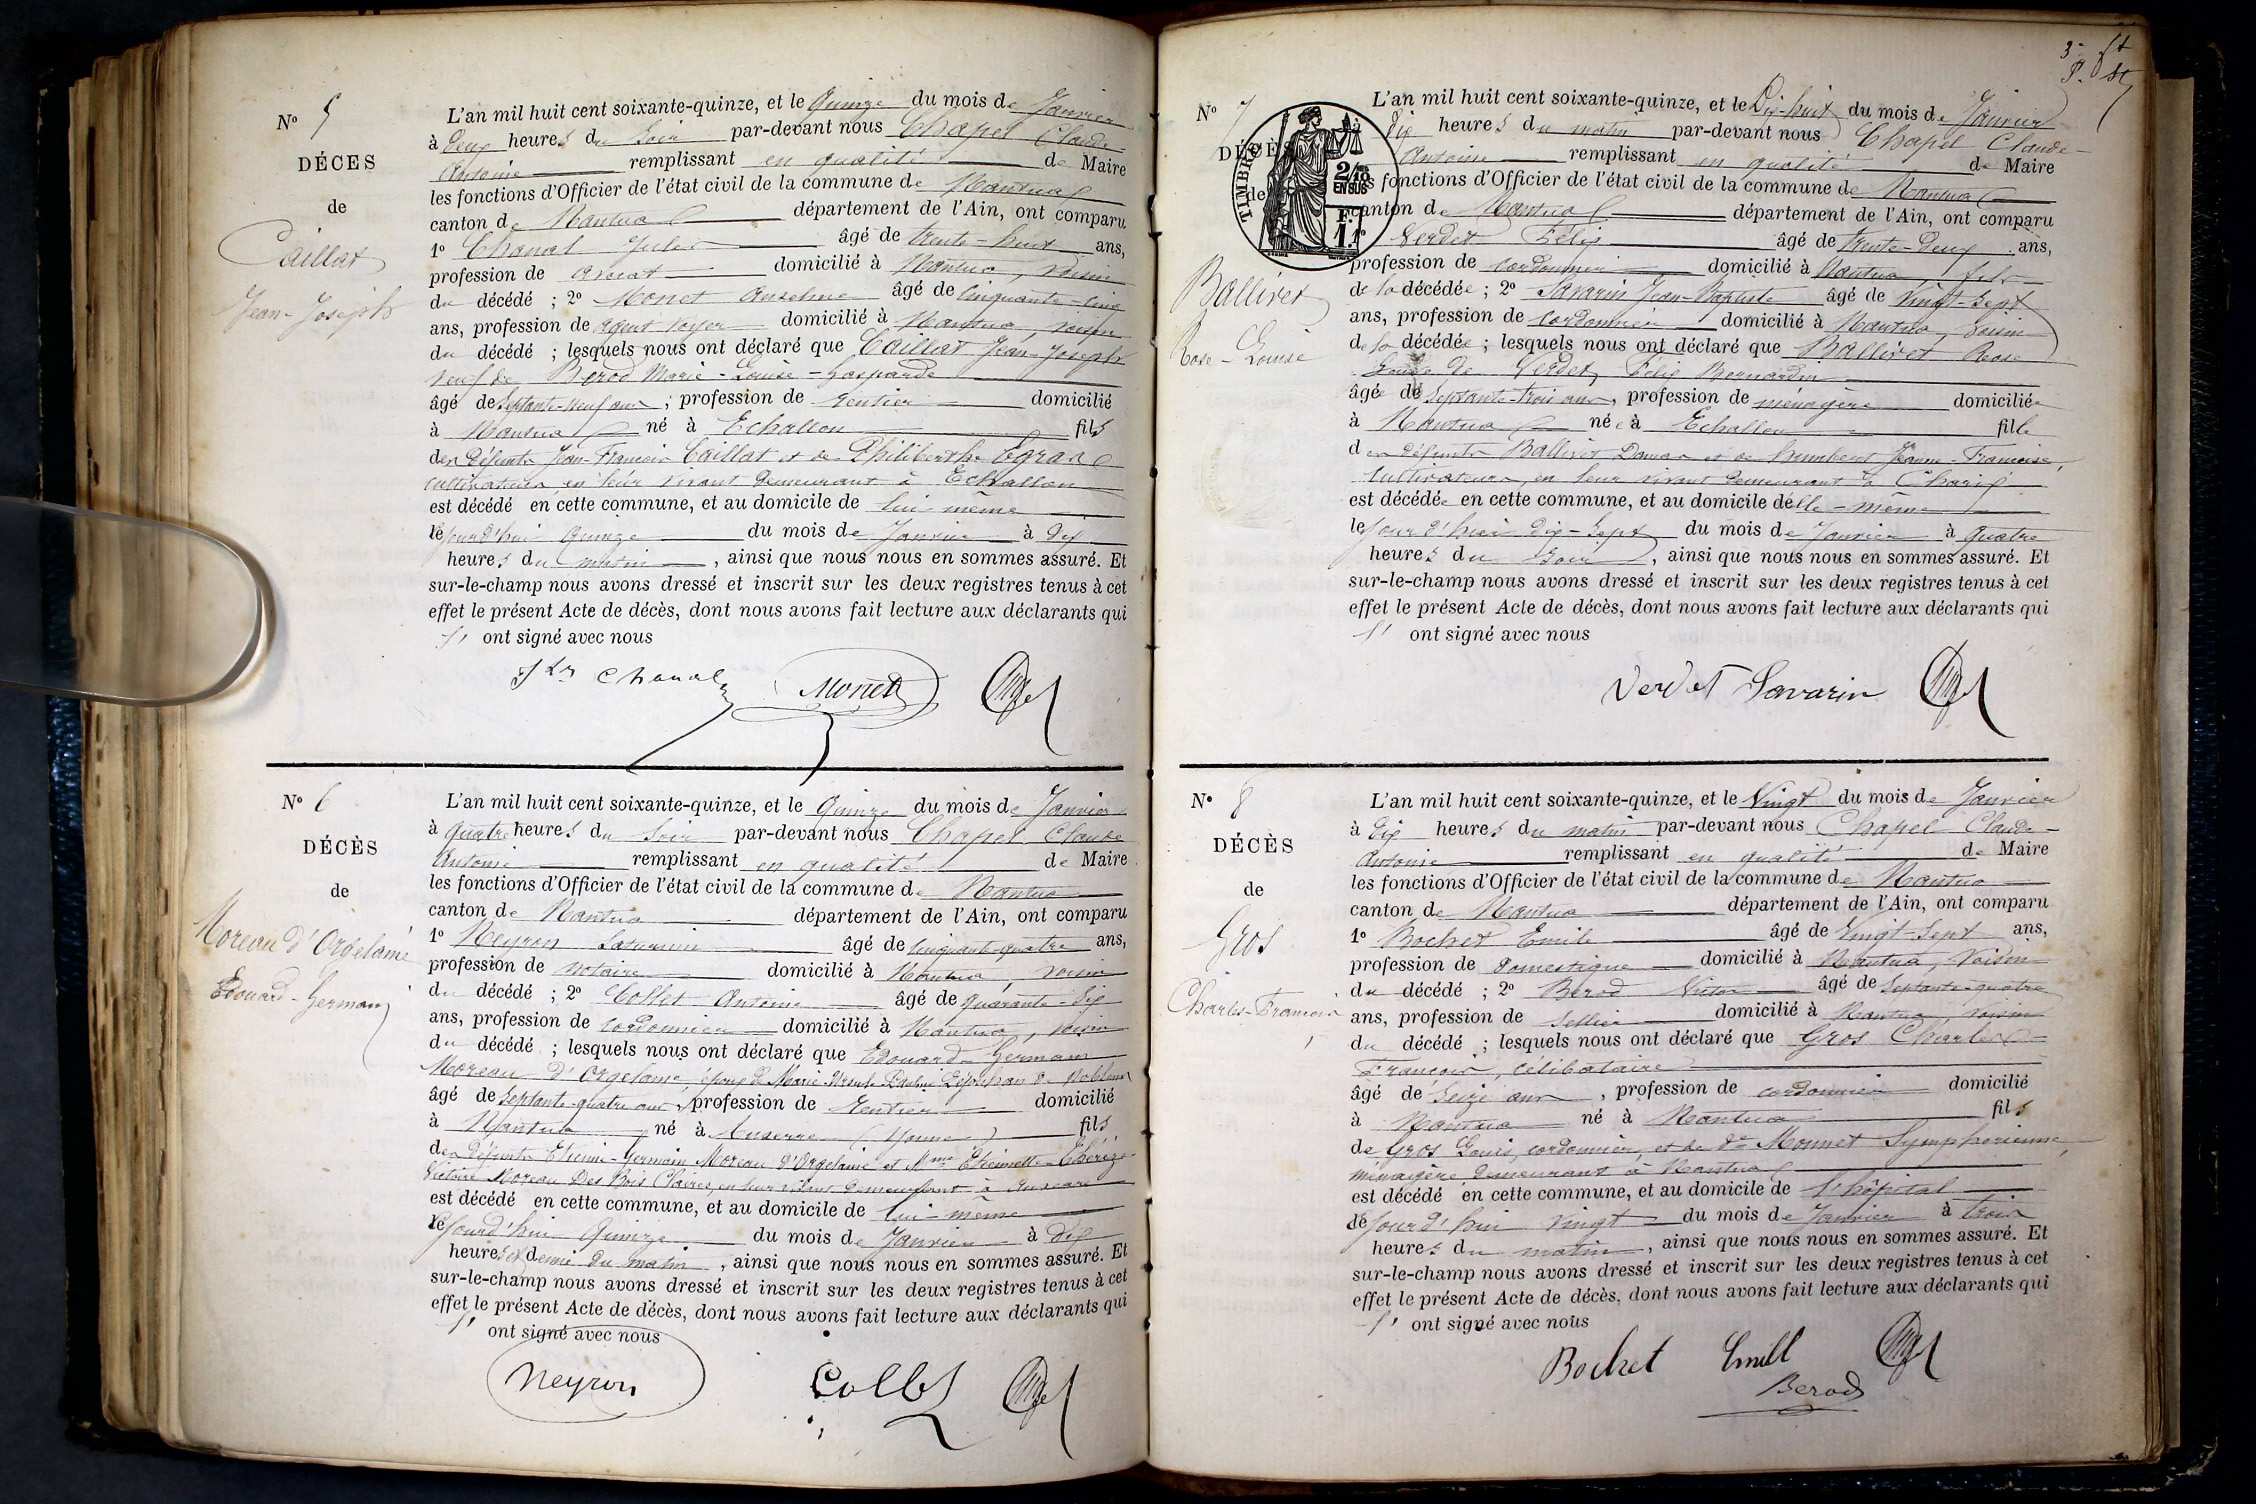 N° 5
DÉCES
de
Caillat
Jean-Joseph
L'an mil huit cent soixante-quinze, et le Quinze du mois de Janvier
à Deux heures du Soir par-devant nous Chapel Claude-
Antoine remplissant en qualité de Maire
les fonctions d'Officier de l'état civil de la commune de Nantua
canton de Nantua département de l'Ain, ont comparu
1° Chanal Jules âgé de trente-huit ans,
profession de avocat domicilié à Nantua, voisin
du décédé ; 2° Monet Anselme âgé de Cinquante-cinq
ans, profession de agent voyer domicilié à Nantua, voisin
du décédé ; lesquels nous ont déclaré que Caillat Jean-Joseph
veuf de Berod Marie-Louise-Gasparde
âgé de Septante-neuf ans, profession de rentier domicilié
à Nantua né à Echallon fils
des défunts Jean-François Caillat et de Philiberthe Egraz
cultivateurs en leur vivant demeurant à Echallon
est décédé en cette commune, et au domicile de lui-même
lejourd'hui Quinze du mois de Janvier à Dix
heures du matin, ainsi que nous nous en sommes assuré. Et
sur-le-champ nous avons dressé et inscrit sur les deux registres tenus à cet
effet le présent Acte de décès, dont nous avons fait lecture aux déclarants qui
l' ont signé avec nous
Jles Chanal Monet
N° 6
DÉCÈS
de
Moreau d'Orgelaine
Edouard-Germain
L'an mil huit cent soixante-quinze, et le Quinze du mois de Janvier
à Quatre heures du Soir par-devant nous Chapel Claude
Antoine remplissant en qualité de Maire
les fonctions d'Officier de l'état civil de la commune de Nantua
canton de Nantua département de l'Ain, ont comparu
1° Neyron Saturnin âgé de Cinquante-quatre ans,
profession de notaire domicilié à Nantua, voisin
du décédé ; 2° Collet Antoine âgé de Quarante-Six
ans, profession de cordonnier domicilié à Nantua, voisin
du décédé ; lesquels nous ont déclaré que Edouard-Germain
Moreau d'Orgelaine, époux de Marie Ursule Pauline
âgé de Septante-quatre ans, profession de rentier domicilié
à Nantua né à Auxerre (Yonne) fils
des défunts Etienne-Germain Moreau d'Orgelaine et Mme Etiennette-Thérèze-
Victoire Moreau Des Bois Claires, en leur vivant demeurant à Auxerre
est décédé en cette commune, et au domicile de lui-même
lejourd'hui Quinze du mois de Janvier à Dix
heures et demie du matin, ainsi que nous nous en sommes assuré. Et
sur-le-champ nous avons dressé et inscrit sur les deux registres tenus à cet
effet le présent Acte de décès, dont nous avons fait lecture aux déclarants qui
l' ont signé avec nous
Neyron Collet
N° 7
DÉCÈS
de
TIMBRE
2/10 EN SUS
1 F.
Balliret
Rose-Louise
L'an mil huit cent soixante-quinze, et le Dix-huit du mois de Janvier
à dix heures du matin par-devant nous Chapel Claude-
Antoine remplissant en qualité de Maire
les fonctions d'Officier de l'état civil de la commune de Nantua
canton de Nantua département de l'Ain, ont comparu
Verdet Félix âgé de trente-Deux ans,
profession de cordonnier domicilié à Nantua, fils
de la décédée ; 2° Savarin Jean-Baptiste âgé de Vingt-Sept
ans, profession de cordonnier domicilié à Nantua, voisin
de la décédée ; lesquels nous ont déclaré que Balliret Rose
de Verdet, Félix Bernardin
âgée de Septante-trois ans, profession de ménagère domiciliée
à Nantua née à Echallon fille
des défunts Balliret Damas et de Humbert Jeanne-Françoise,
cultivateurs en leur vivant demeurant à Charix
est décédée en cette commune, et au domicile d'elle-même
lejourd'hui dix-Sept du mois de Janvier à Quatre
heures du Soir, ainsi que nous nous en sommes assuré. Et
sur-le-champ nous avons dressé et inscrit sur les deux registres tenus à cet
effet le présent Acte de décès, dont nous avons fait lecture aux déclarants qui
l' ont signé avec nous
Verdet Savarin
N° 8
DÉCÈS
de
Gros
Charles-François
L'an mil huit cent soixante-quinze, et le Vingt du mois de Janvier
à dix heures du matin par-devant nous Chapel Claude-
Antoine remplissant en qualité de Maire
les fonctions d'Officier de l'état civil de la commune de Nantua
canton de Nantua département de l'Ain, ont comparu
1° Bochet Emile âgé de Vingt-Sept ans,
profession de Domestique domicilié à Nantua, Voisin
du décédé ; 2° Berod Victor âgé de Septante-quatre
ans, profession de Sellier domicilié à Nantua, voisin
du décédé ; lesquels nous ont déclaré que Gros Charles
François, célibataire
âgé de Seize ans, profession de cordonnier domicilié
à Nantua né à Nantua fils
de Gros Louis, cordonnier, et de De Monnet Symphorienne,
ménagère demeurant à Nantua
est décédé en cette commune, et au domicile de l'hôpital
cejourd'hui Vingt du mois de Janvier à trois
heures du matin, ainsi que nous nous en sommes assuré. Et
sur-le-champ nous avons dressé et inscrit sur les deux registres tenus à cet
effet le présent Acte de décès, dont nous avons fait lecture aux déclarants qui
l' ont signé avec nous
Bochet Emill
Berod